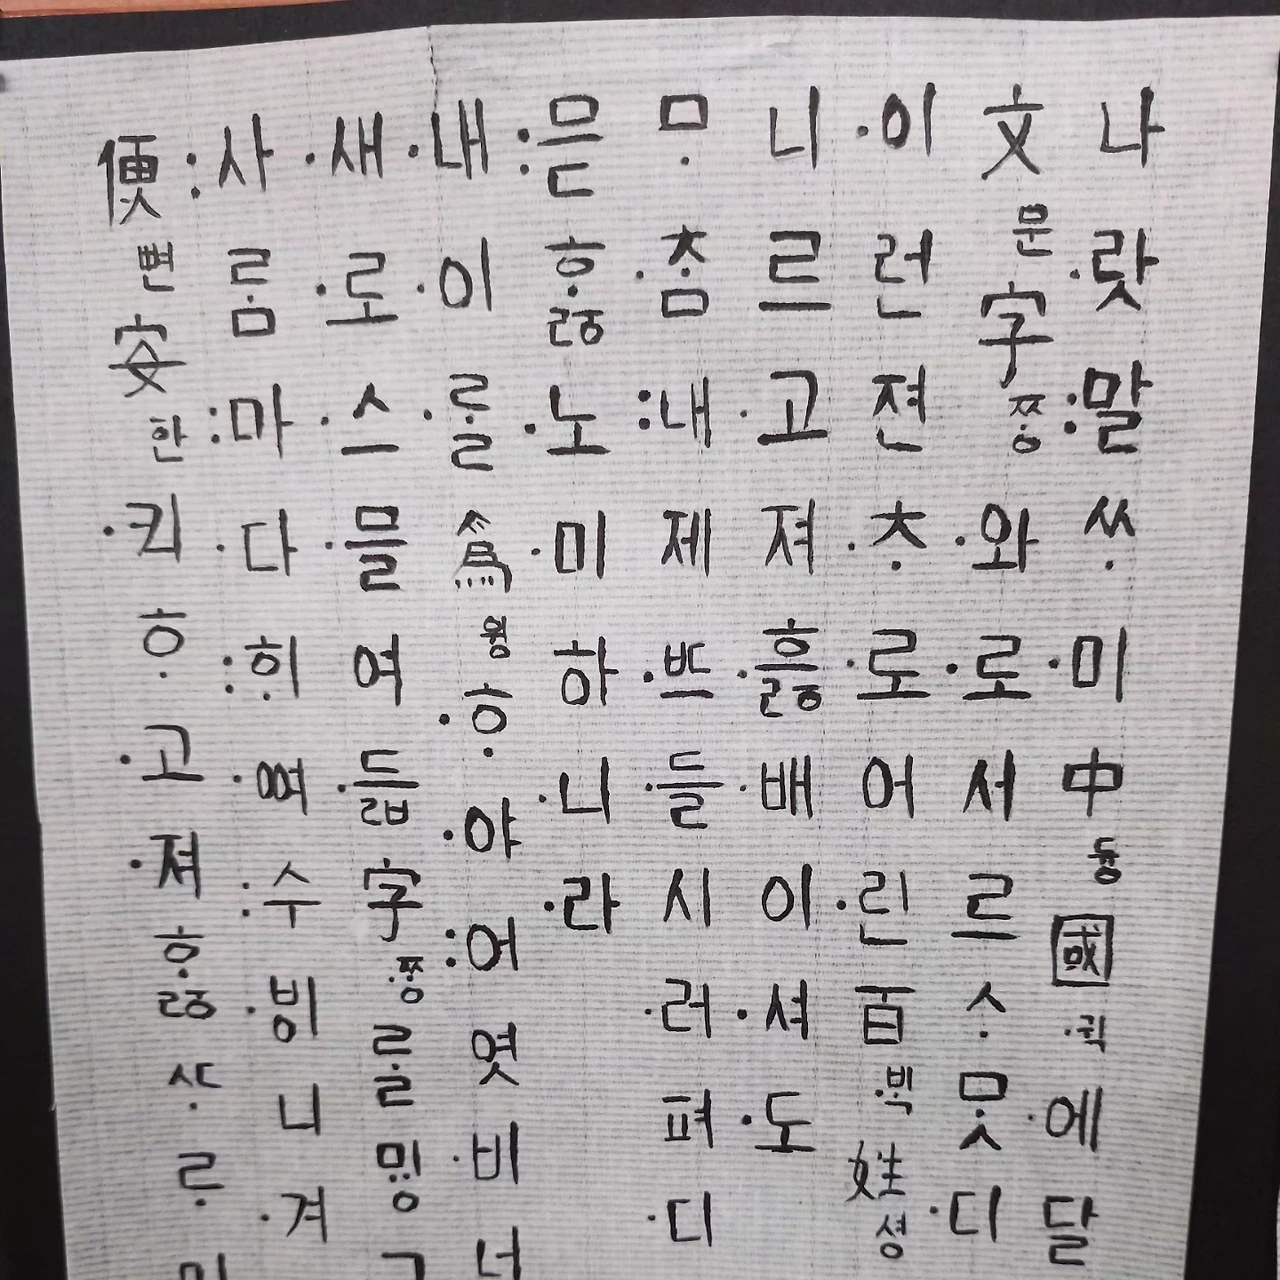 나·랏:말ᄊᆞ·미中듕國·귁·에달
文문字ᄍᆞᆼ·와·로서르ᄉᆞᄆᆞᆺ·디
·이런젼·ᄎᆞ·로어·린百·ᄇᆡᆨ姓·셩
니르·고져·흐ᇙ배이·셔·도
ᄆᆞ·ᄎᆞᆷ:내제·ᄠᅳ·들시·러펴·디
:믇ᄒᆞᇙ·노·미하·니·라
·내·이·ᄅᆞᆯ爲윙·ᄒᆞ·야:어엿·비너
·새·로·스·믈여·듧字·ᄍᆞᆼᄅᆞᆯᄆᆡᆼ
:사ᄅᆞᆷ:마·다:ᄒᆡ·ᅇᅧ:수·ᄫᅵ니·겨
便뼌安한·킈ᄒᆞ·고·져ᄒᆞᇙᄯᆞᄅᆞ